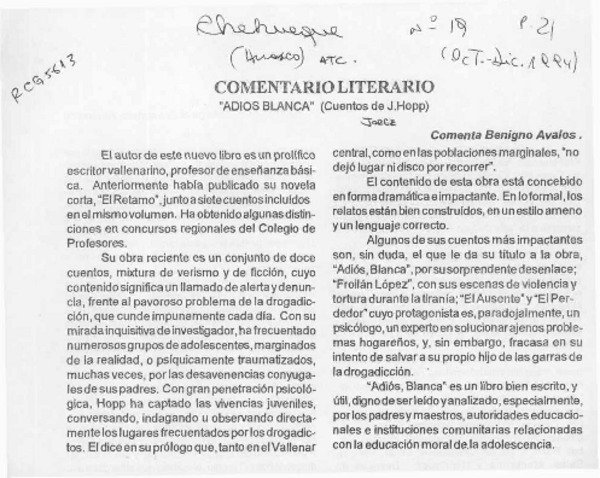 Chehueque Nº 19 P. 21
(Huasco) ATC. (Oct.-Dic. 1994)
RCG5613
COMENTARIO LITERARIO
"ADIOS BLANCA" (Cuentos de J.Hopp)
JORGE
Comenta Benigno Avalos .
El autor de este nuevo libro es un prolífico
escritor vallenarino, profesor de enseñanza bási-
ca. Anteriormente había publicado su novela
corta, "El Retamo", junto a siete cuentos incluídos
en el mismo volumen. Ha obtenido algunas distin-
ciones en concursos regionales del Colegio de
Profesores.
Su obra reciente es un conjunto de doce
cuentos, mixtura de verismo y de ficción, cuyo
contenido significa un llamado de alerta y denun-
cia, frente al pavoroso problema de la drogadic-
ción, que cunde impunemente cada día. Con su
mirada inquisitiva de investigador, ha frecuentado
numerosos grupos de adolescentes, marginados
de la realidad, o psíquicamente traumatizados,
muchas veces, por las desavenencias conyuga-
les de sus padres. Con gran penetración psicoló-
gica, Hopp ha captado las vivencias juveniles,
conversando, indagando u observando directa-
mente los lugares frecuentados por los drogadic-
tos. El dice en su prólogo que, tanto en el Vallenar
central, como en las poblaciones marginales, "no
dejó lugar ni disco por recorrer".
El contenido de esta obra está concebido
en forma dramática e impactante. En lo formal, los
relatos están bien construídos, en un estilo ameno
y un lenguaje correcto.
Algunos de sus cuentos más impactantes
son, sin duda, el que le da su título a la obra,
"Adiós, Blanca", por su sorprendente desenlace;
"Froilán López", con sus escenas de violencia y
tortura durante la tiranía; "El Ausente" y "El Per-
dedor" cuyo protagonista es, paradojalmente, un
psicólogo, un experto en solucionar ajenos proble-
mas hogareños, y, sin embargo, fracasa en su
intento de salvar a su propio hijo de las garras de
la drogadicción.
"Adiós, Blanca" es un libro bien escrito, y
útil, digno de ser leído y analizado, especialmente,
por los padres y maestros, autoridades educacio-
nales e instituciones comunitarias relacionadas
con la educación moral de la adolescencia.